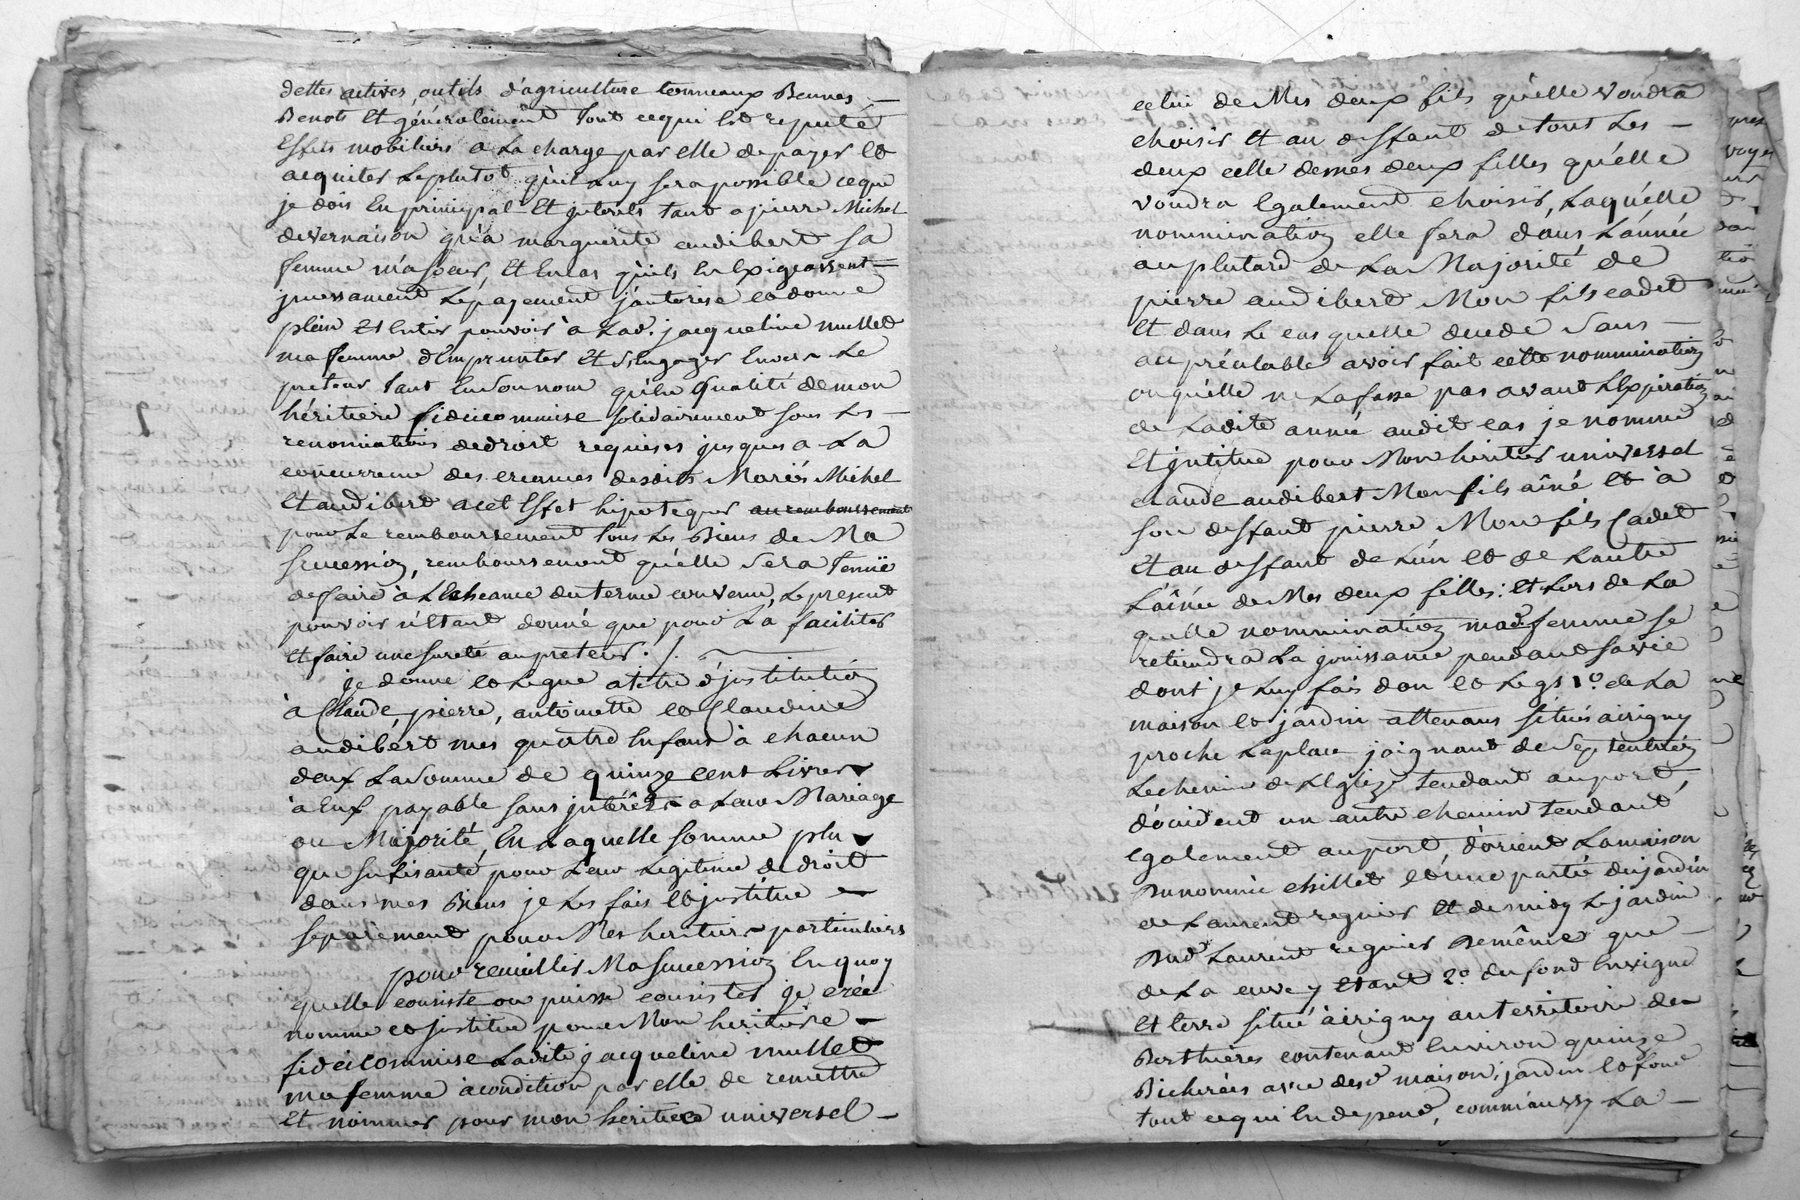 dettes actives, outils d'agriculture tonneaux Bennes,
Benots Et généralement Tout cequi Est reputé
Effets mobiliers a La charge par elle de payer et
acquiter Leplutot qu'il Luy sera possible ceque
je dois En principal Et interets tant a pierre Michel
devernaison qu'a marguerite audibert sa
femme ma soeur, Et Encas qu'ils En Exigeassent
puessament Lepayement j'autorise et donne
plein et Entier pouvoir à Lad. jacqueline mullet
ma femme d'Emprunter Et s'Engager Envers Le
preteur Tant Ensonnom qu'En Qualité demon
héritiere fideicommise solidairement sous Les
renonciations dedroit requises jusques a La
concurrence des creances desdits Mariés Michel
Et audibert acet Effet hipotequer au remboursement
pour Le remboursement Tous Les Biens de Ma
succession, remboursement qu'elle sera Tenüe
defaire à LEcheance du terme convenu, Le present
pouvoir n'Etant donné que pour La faciliter
Et faire une sureté au preteur ./.
Je donne et Legue atitre d'institution
à Claude, pierre, antoinette et Claudine
audibert mes quatre Enfans à chacun
deux La somme de quinze cent Livres
à Eux payable sans intérêts a Leur Mariage
ou Majorité, En Laquelle somme plus
que sufisante pour Leur Legitime de droit
dans mes Biens je Les fais et institue
separement pour Mes heritiers particuliers
pour receuillir Ma succession En quoy
quelle consiste ou puisse consister je crée
nomme et institue pour Mon heritiere
fideicommise Ladite jacqueline mullet
ma femme acondition par elle de remettre
Et nommer pour mon heritier universel
celui de Mes deux fils qu'elle voudra
choisir Et au deffaut de tous Les
deux celle demes deux filles qu'elle
voudra Egalement choisir, Laquelle
nommination elle fera dans L'année
auplutard de La Majorité de
pierre audibert Mon fils cadet
Et dans Le cas quelle decede sans
au préalable avoir fait cette nommination
ou qu'elle ne Lafasse pas avant LExpiration
de Ladite année audit cas je nomme
Et jntitue pour Mon heritier universel
claude audibert Mon fils aîné et à
son deffaut pierre Mon fils Cadet
Et au deffaut de L'un et de Lautre
L'aînée de Mes deux filles; Et Lors de La
quelle nommination mad. femme se
retiendra La jouissance pendant savie
dont je Luy fais don et Legs 1.o de La
maison et jardin attenans situés airigny
proche Laplace joignant de Septentrion
Le chemin de LEglize tendant auport,
d'occident un autre chemin tendant
Egalement auport, d'orient La maison
Dunommé chillet et une partie dujardin
de Laurent regnier Et de midy Le jardin
Dud. Laurent regnier Demême que
de La cuve y Etant 2.o du fond Envigne
Et terre situé àirigny au territoire des
Berthieres contenant Environ quinze
Bicherées avec desd. maison, jardin et fond
tout cequi En depend, comm'aussy La